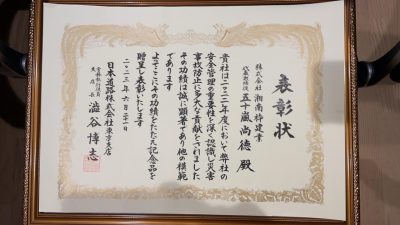 表彰状
株式会社 湘南枠建業
代表取締役 五十嵐 尚徳 殿
貴社は二〇二二年度において弊社の
安全管理の重要性を深く認識し災害
事故防止に多大な貢献をされました
その功績は誠に顕著であり他の模範
であります
よってここにその功績をたたえ記念品を
贈呈し表彰いたします
二〇二三年六月二十一日
日本道路株式会社東京支店
支店長
澁谷 博志